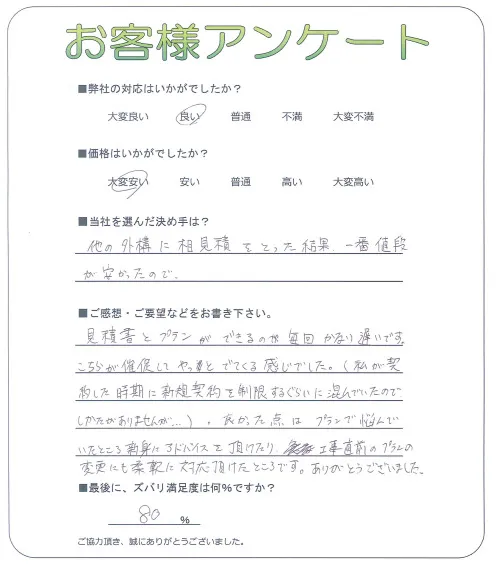 お客様アンケート
■弊社の対応はいかがでしたか？
大変良い 良い 普通 不満 大変不満
■価格はいかがでしたか？
大変安い 安い 普通 高い 大変高い
■当社を選んだ決め手は？
他の外構に相見積をとった結果、一番値段
が安かったので、
■ご感想・ご要望などをお書き下さい。
見積書とプランができるのが毎回かなり遅いです。
こちらが催促してやっとでてくる感じでした。(私が契
約した時期に新規契約を制限するぐらいに混んでいたので
しかたがありませんが…)。良かった点はプランで悩んで
いたところ親身にアドバイスを頂けたり、工事直前のプランの
変更にも柔軟に対応頂けたところです。ありがとうございました。
■最後に、ズバリ満足度は何％ですか？
80 %
ご協力頂き、誠にありがとうございました。